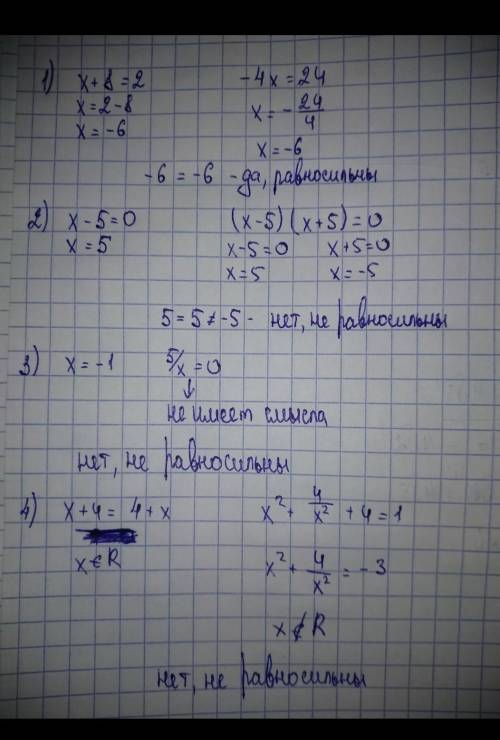 1) x + 8 = 2    -4x = 24
x = 2 - 8    x = - 24/4
x = -6    x = -6
-6 = -6 - да, равносильны
2) x - 5 = 0    (x - 5) (x + 5) = 0
x = 5    x - 5 = 0    x + 5 = 0
x = 5    x = -5
5 = 5 ≠ -5 - нет, не равносильны
3) x = -1    5/x = 0
↓
не имеет смысла
нет, не равносильны
4) x + 4 = 4 + x    x² + 4/x² + 4 = 1
x ∈ R    x² + 4/x² = -3
x ∉ R
нет, не равносильны